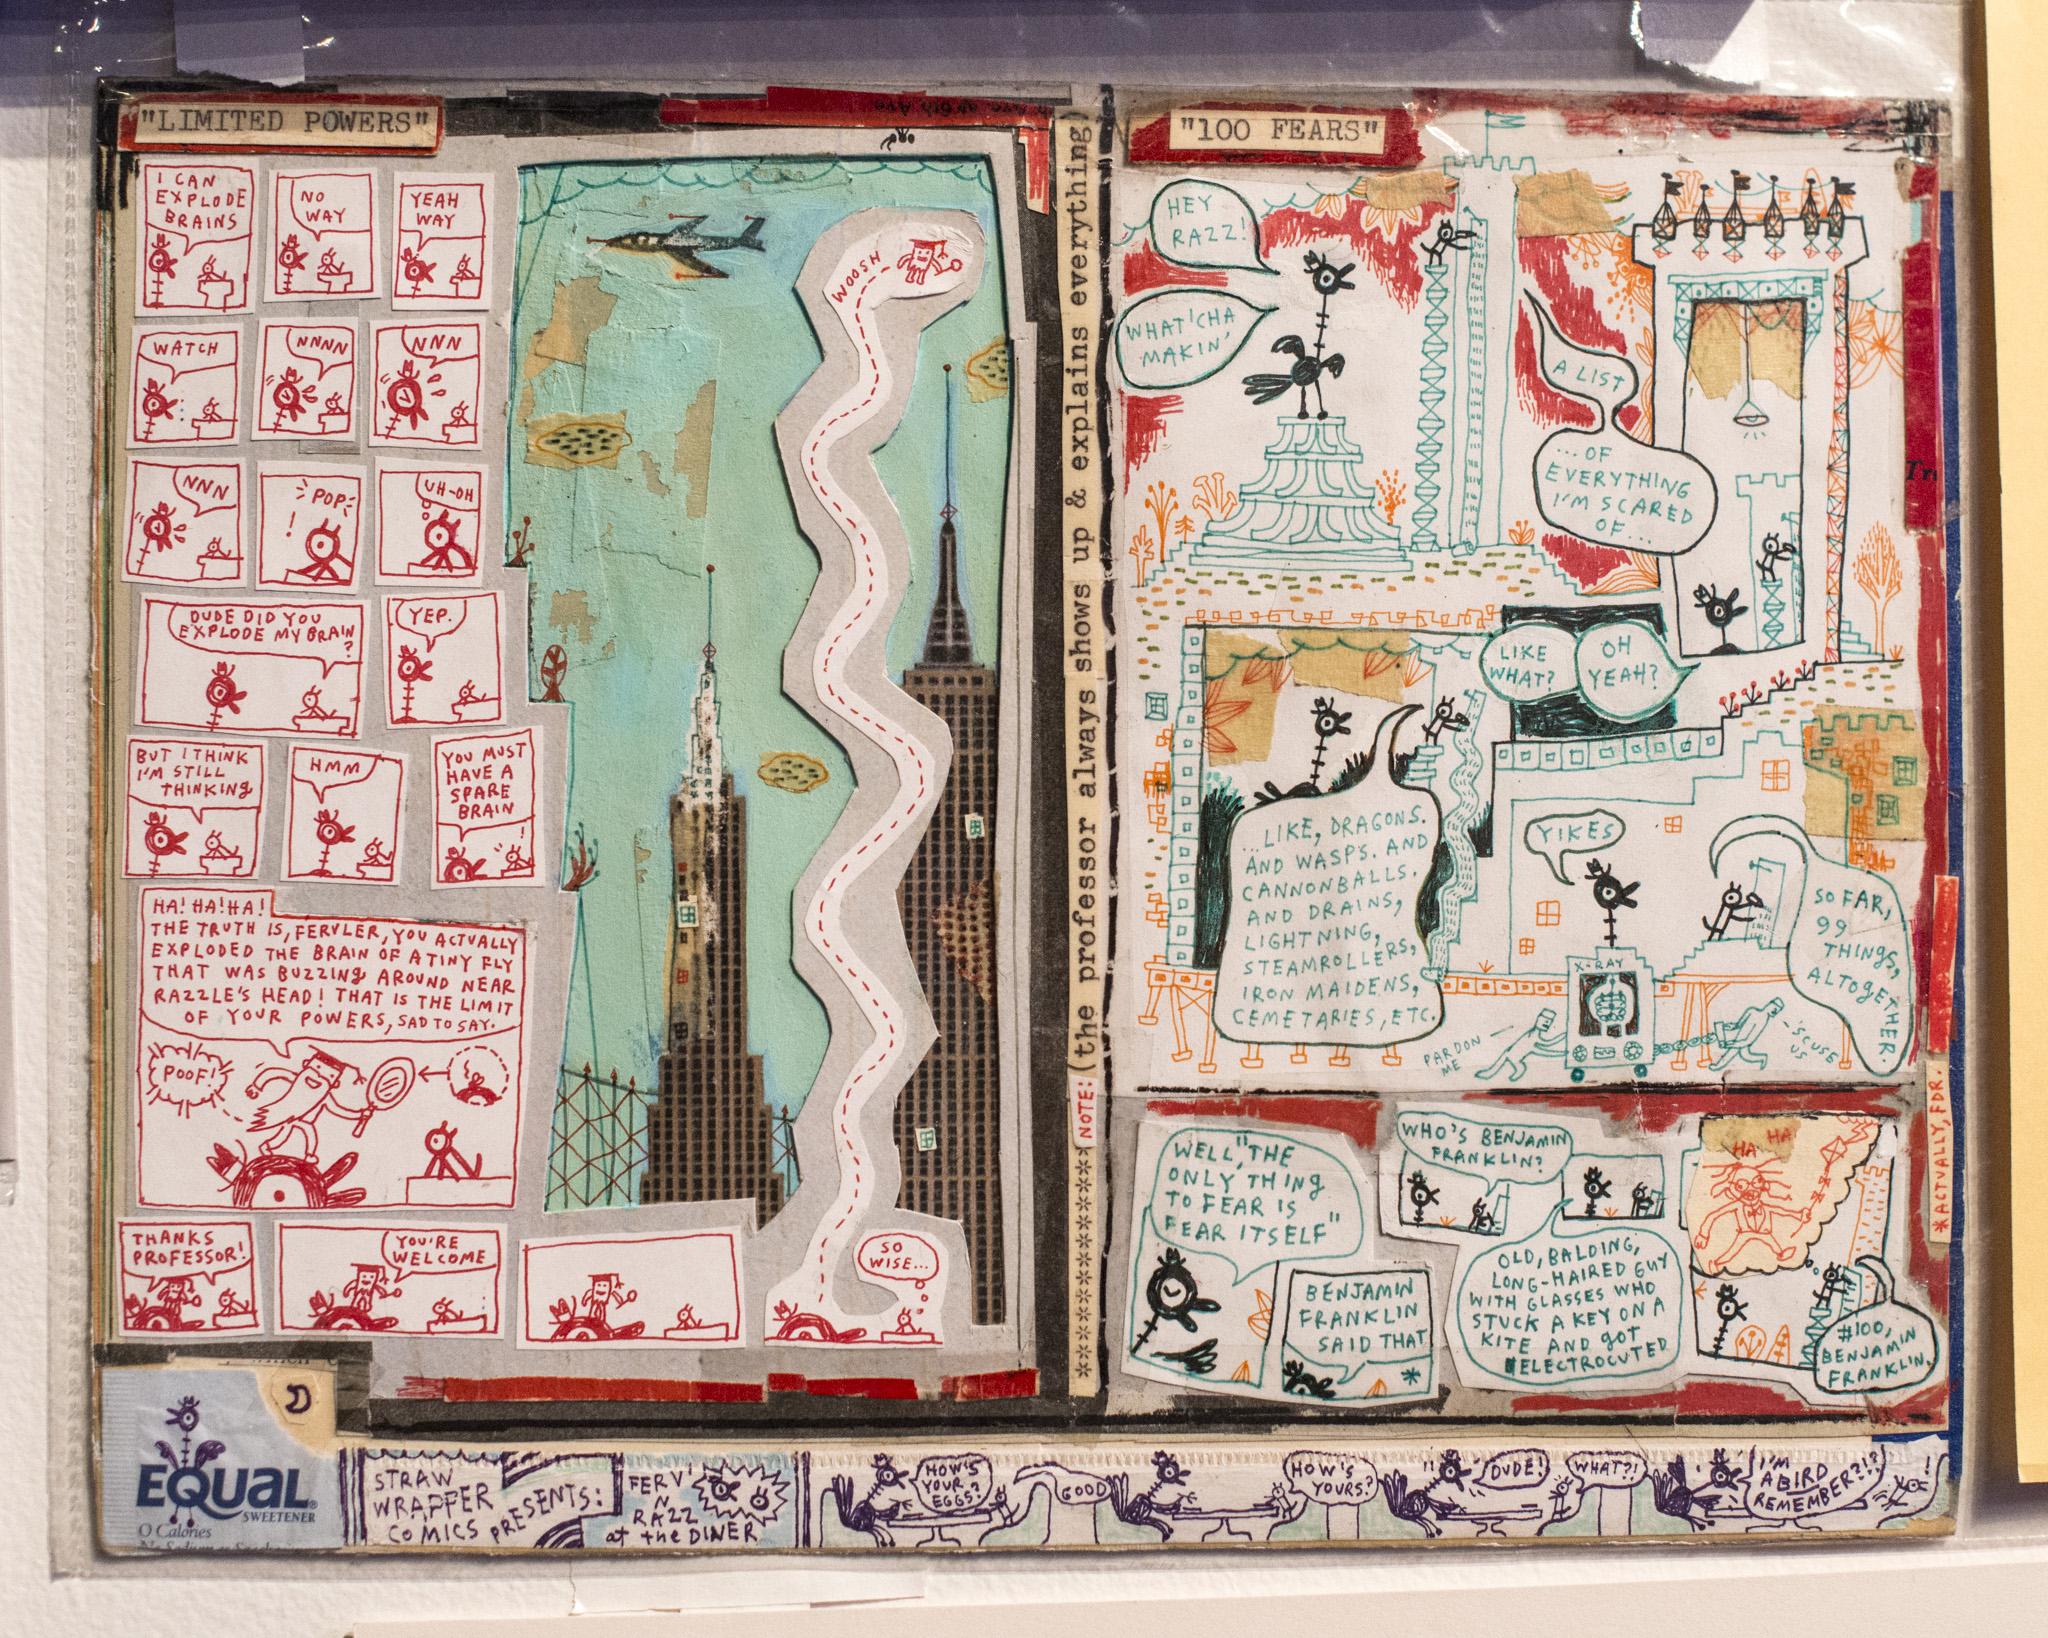 "LIMITED POWERS"
I CAN
EXPLODE
BRAINS
NO
WAY
YEAH
WAY
WATCH
NNNN
NNN
NNN
POP
!
UH-OH
DUDE DID YOU
EXPLODE MY BRAIN
?
YEP.
BUT I THINK
I'M STILL
THINKING
HMM
YOU MUST
HAVE A
SPARE
BRAIN
!
HA! HA! HA!
THE TRUTH IS, FERVLER, YOU ACTUALLY
EXPLODED THE BRAIN OF A TINY FLY
THAT WAS BUZZING AROUND NEAR
RAZZLE'S HEAD! THAT IS THE LIMIT
OF YOUR POWERS, SAD TO SAY.
POOF!
THANKS
PROFESSOR!
YOU'RE
WELCOME
WOOSH
SO
WISE...
NOTE: (the professor always shows up & explains everything)
"100 FEARS"
HEY
RAZZ!
WHAT'CHA
MAKIN'
A LIST
...OF
EVERYTHING
I'M SCARED
OF...
OH
YEAH?
LIKE
WHAT?
...LIKE, DRAGONS.
AND WASPS. AND
CANNONBALLS.
AND DRAINS,
LIGHTNING,
STEAMROLLERS,
IRON MAIDENS,
CEMETARIES, ETC.
YIKES
SO FAR,
99
THINGS,
ALTOGETHER.
X-RAY
PARDON
ME
'SCUSE
US
WELL, "THE
ONLY THING
TO FEAR IS
FEAR ITSELF"
BENJAMIN
FRANKLIN
SAID THAT
*
WHO'S BENJAMIN
FRANKLIN?
OLD, BALDING,
LONG-HAIRED GUY
WITH GLASSES WHO
STUCK A KEY ON A
KITE AND GOT
ELECTROCUTED
HA HA
HA
#100,
BENJAMIN
FRANKLIN.
*ACTUALLY, FDR.
EQUAL®
SWEETENER
0 Calories
STRAW
WRAPPER
COMICS PRESENTS:
FERV'
N
RAZZ
at the DINER
HOW'S
YOUR
EGGS?
GOOD
HOW'S
YOURS?
DUDE!
WHAT?!
I'M
A BIRD
REMEMBER?!?
!